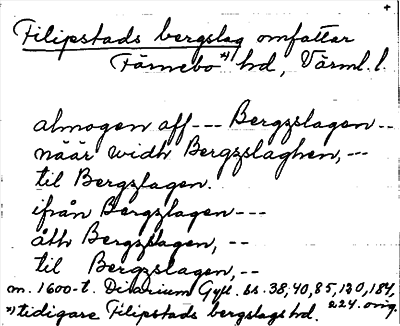 +
Filipstads bergslag omfattar
Färnebo *) hd, Värml. l.
almogen aff --- Bergzslagen --
näär widh Bergzslaghen, ---
til Bergzlagen.
ifrån Bergzlagen ---
åth Bergzslagen, --
til Bergzslagen, --
m. 1600-t. Diarium Gyll. ss. 38, 40, 85, 130, 184,
224. orig.
*) tidigare Filipstads bergslags hd.